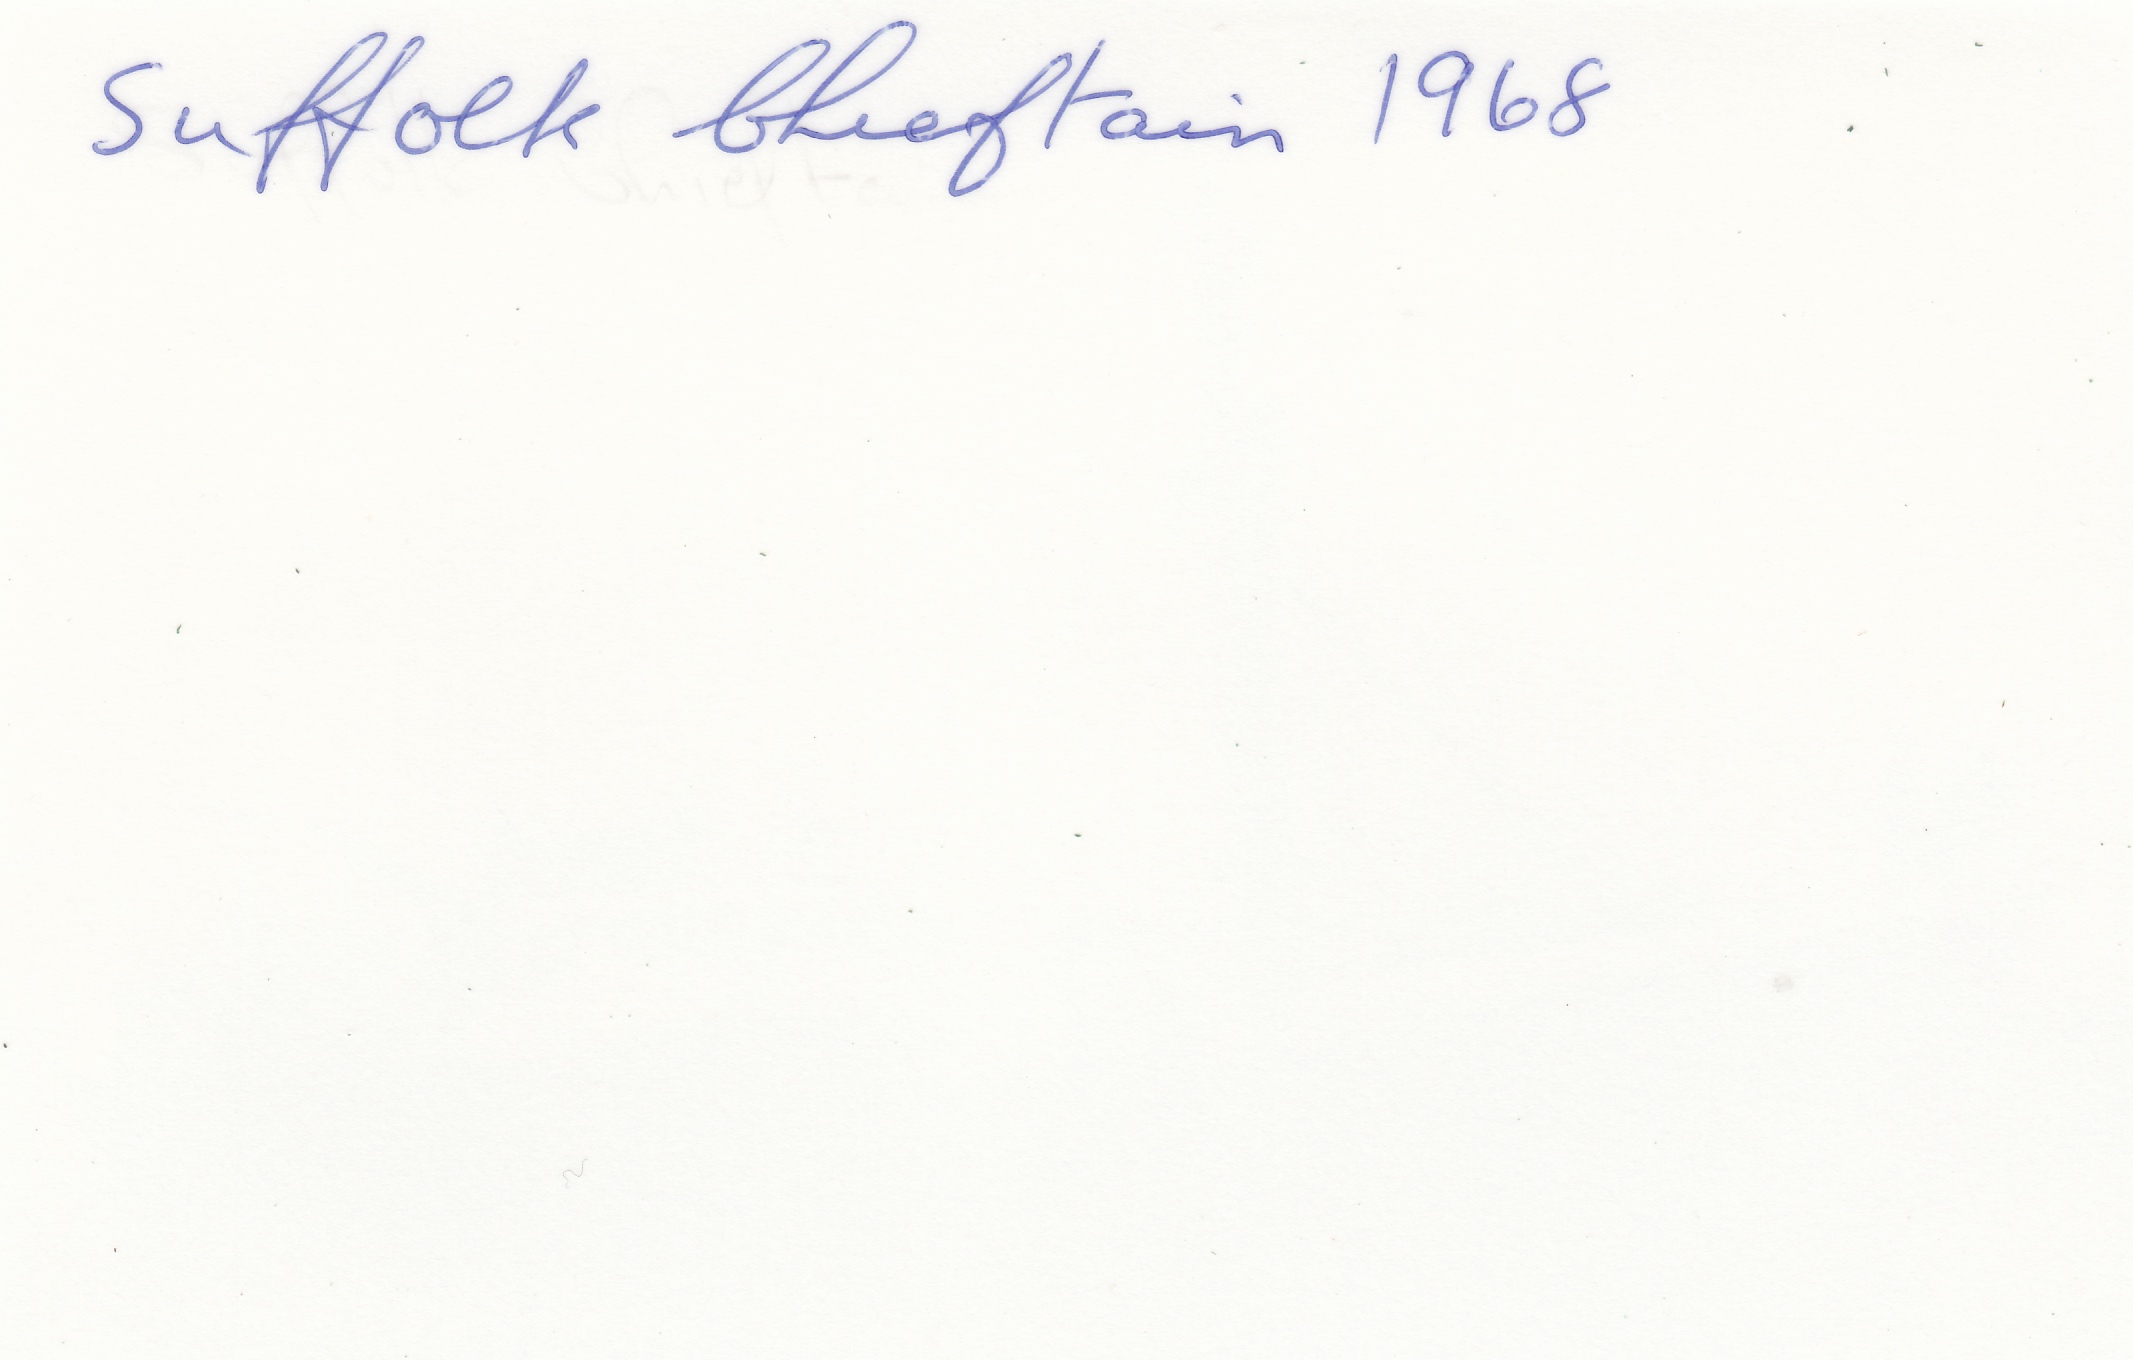 Suffolk Chieftain 1968